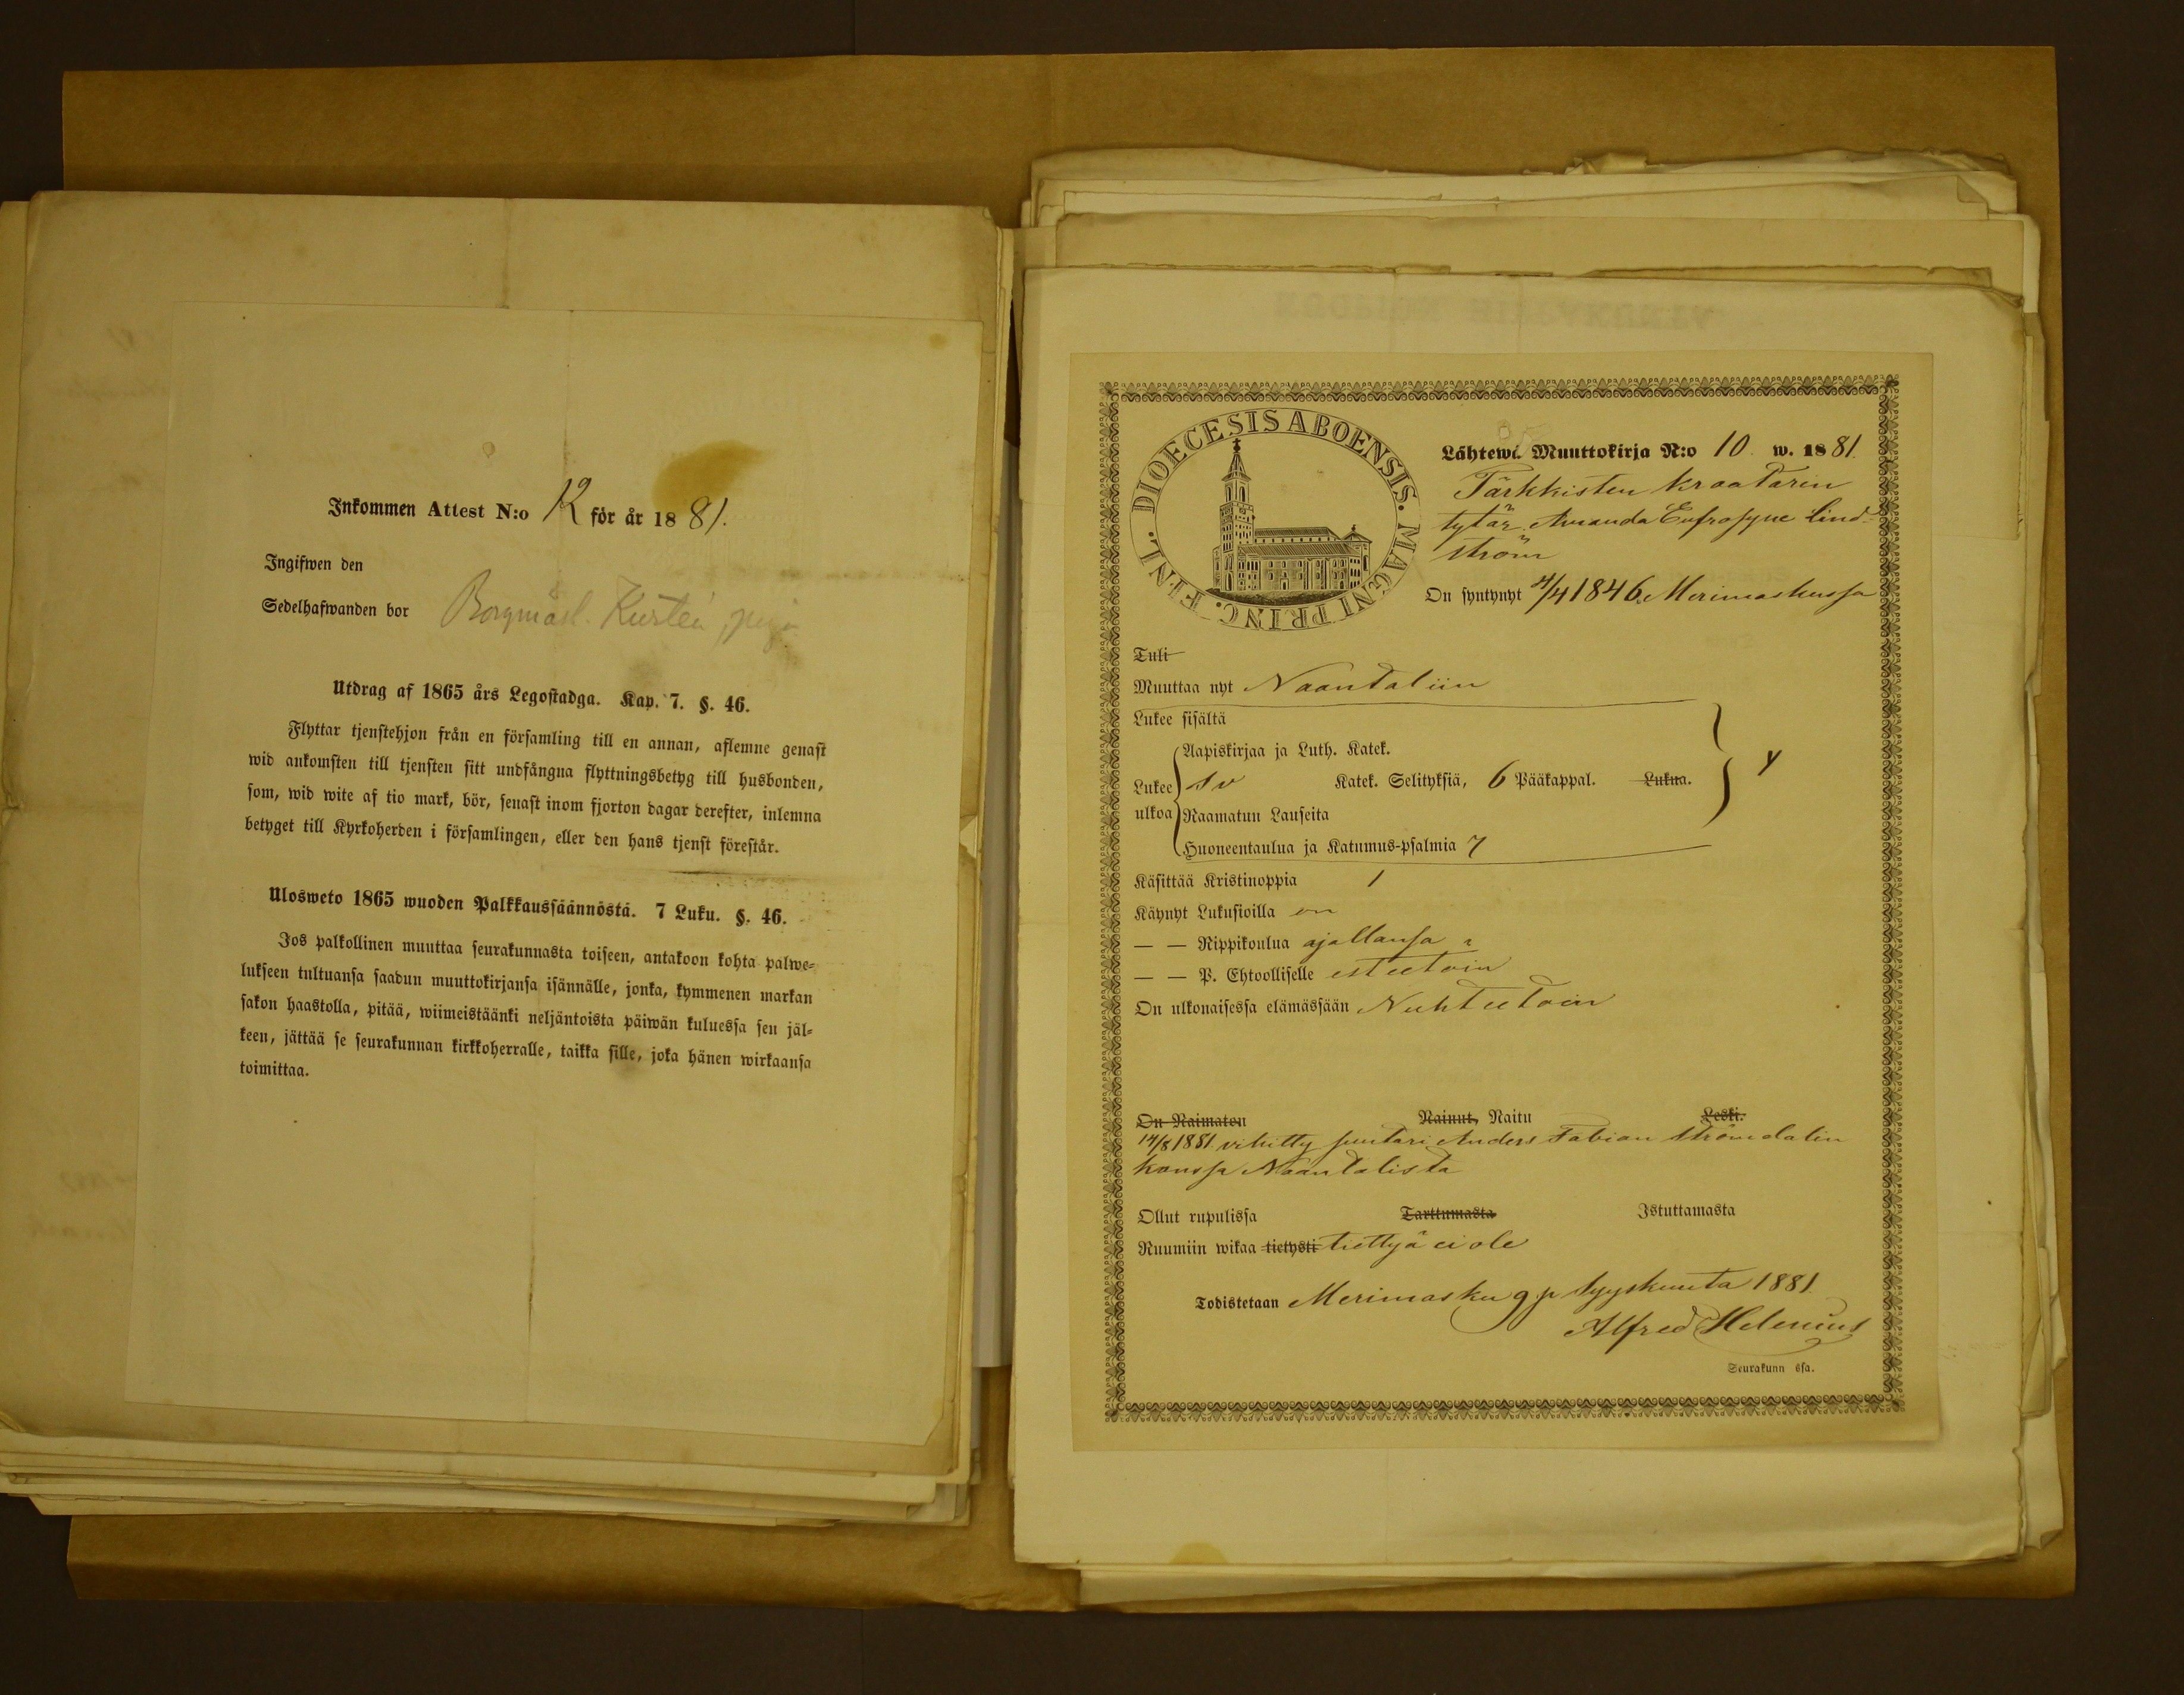 Inkommen Attest N:o 12 för år 1881.
Ingifwen den
Sedelhafwanden bor Borgmäst. Kusten, piga
Utdrag af 1865 års Legostadga. Kap. 7. §. 46.
Flyttar tjenstehjon från en församling till en annan, aflemne genast
wid ankomsten till tjensten sitt undfångna flyttningsbetyg till husbonden,
som, wid wite af tio mark, bör, senast inom fjorton dagar derefter, inlemna
betyget till Kyrkoherden i församlingen, eller den hans tjenst förestår.
Ulosweto 1865 wuoden Palkkaussäännöstä. 7 Luku. §. 46.
Jos palkollinen muuttaa seurakunnasta toiseen, antakoon kohta palwe=
lukseen tultuansa saadun muuttokirjansa isännälle, jonka, kymmenen markan
sakon haastolla, pitää, wiimeistäänki neljäntoista päiwän kuluessa sen jäl=
keen, jättää se seurakunnan kirkkoherralle, taikka sille, joka hänen wirkaansa
toimittaa.
DIOECESIS ABOENSIS. MAGNI PRINC. FINL.
Lähtewä Muuttokirja N:o 10 w. 1881.
Pärkkisten kraatarin
tytär Amanda Eufrosyne Lind-
ström
On syntynyt 4/4 1846 Merimaskussa
Tuli
Muuttaa nyt Naantaliin
Lukee sisältä
Aapiskirjaa ja Luth. Katek.
Lukee ulkoa
Katek. Selityksiä, 6 Pääkappal. Lukua.
Raamatun Lauseita
Huoneentaulua ja Katumus-psalmia 7
Käsittää Kristinoppia 1
Käynyt Lukusioilla on
— — Rippikoulua ajallansa
— — P. Ehtoolliselle esteetöin
On ulkonaisessa elämässään Nuhteetoin
On Naimaton Nainut, Naitu Leski.
14/8 1881 vihitty suutari Anders Fabian Strömdalin
kanssa Naantalista
Ollut rupulissa Tarttumasta Istuttamasta
Ruumiin wikaa tietysti tiettyä ei ole
Todistetaan Merimasku 9 p Syyskuuta 1881
Alfred Helenius
Seurakunn ssa.